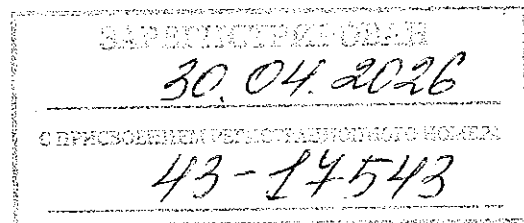 ЗАРЕГИСТРИРОВАН
30.04.2026
С ПРИСВОЕНИЕМ РЕГИСТРАЦИОННОГО НОМЕРА
43-17543